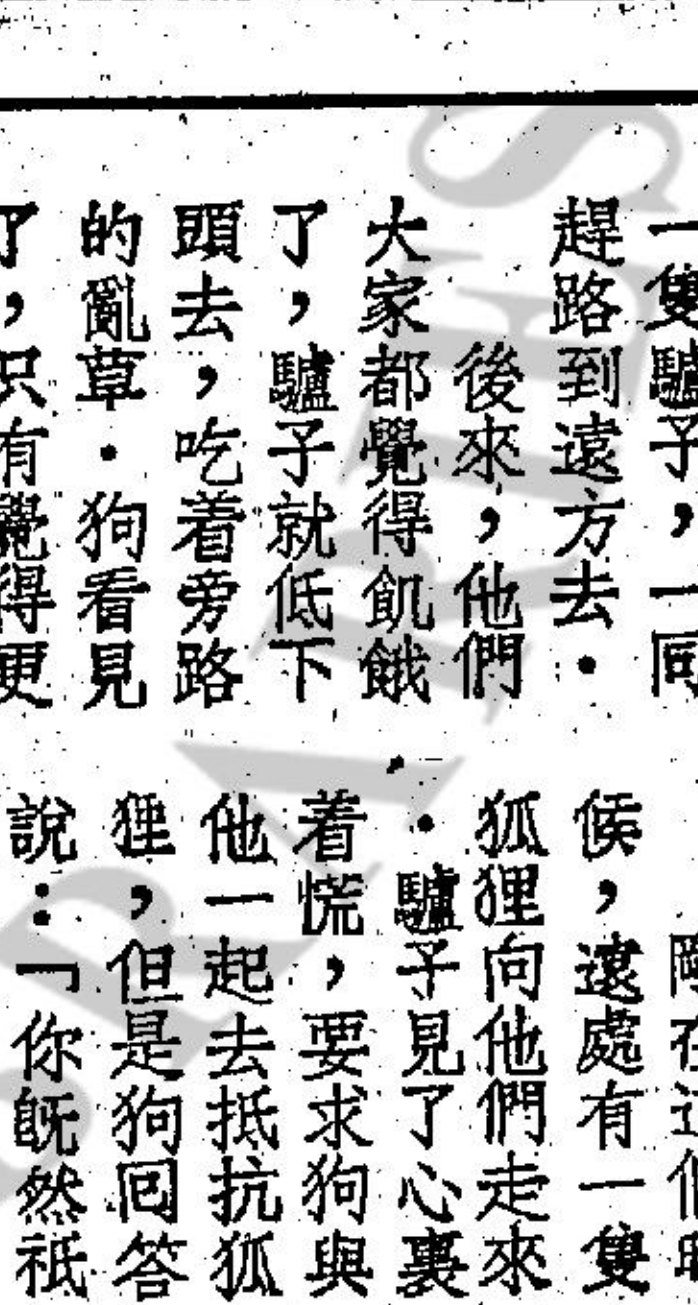 一隻驢子，一同
趕路到遠方去．
後來，他們
大家都覺得飢餓
了，驢子就低下
頭去，吃着旁路
的亂草．狗看見
了，只有覺得更
剛在這個時
候，遠處有一隻
狐狸向他們走來
．驢子見了心裏
着慌，要求狗與
他一起去抵抗狐
狸，但是狗回答
說：「你既然祗